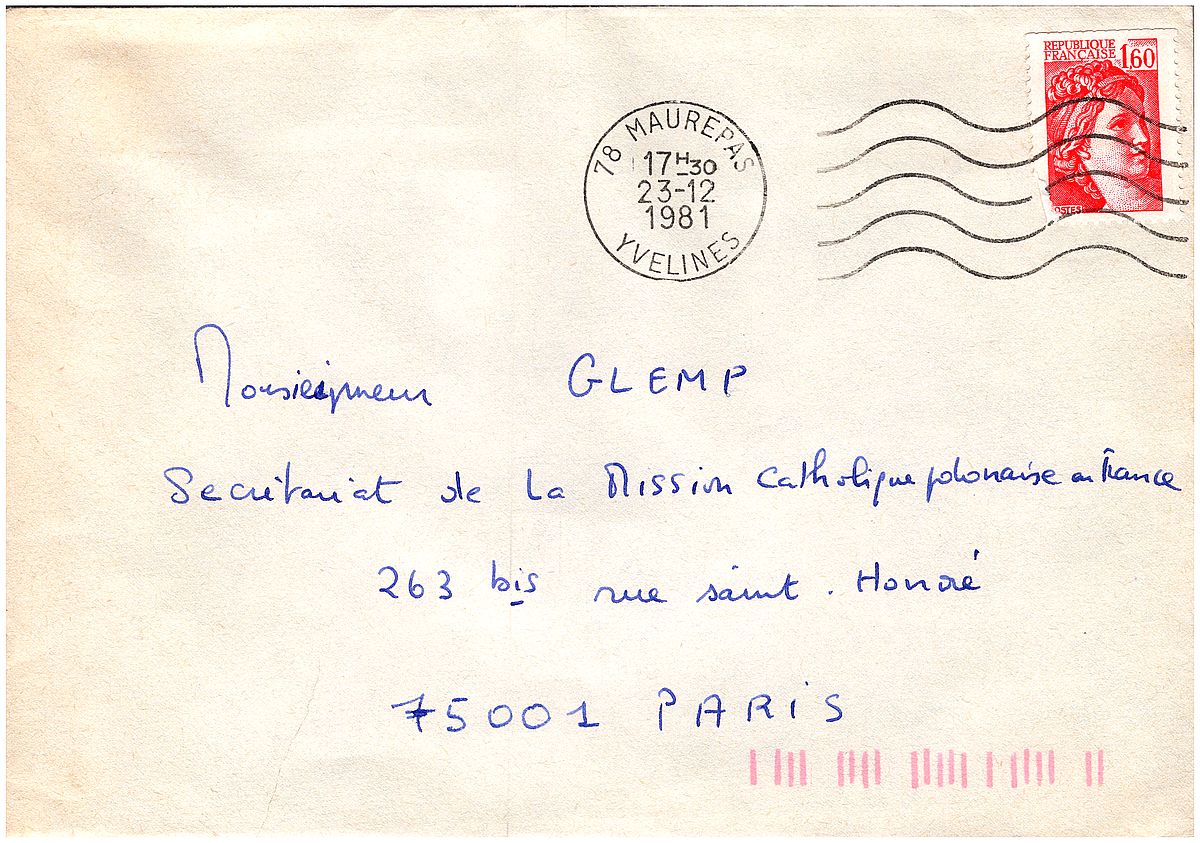 REPUBLIQUE
FRANÇAISE 1,60
POSTES
78 MAUREPAS
17H30
23-12
1981
YVELINES
Monseigneur GLEMP
Secrétariat de La Mission Catholique polonaise en France
263 bis rue saint. Honoré
75001 PARiS